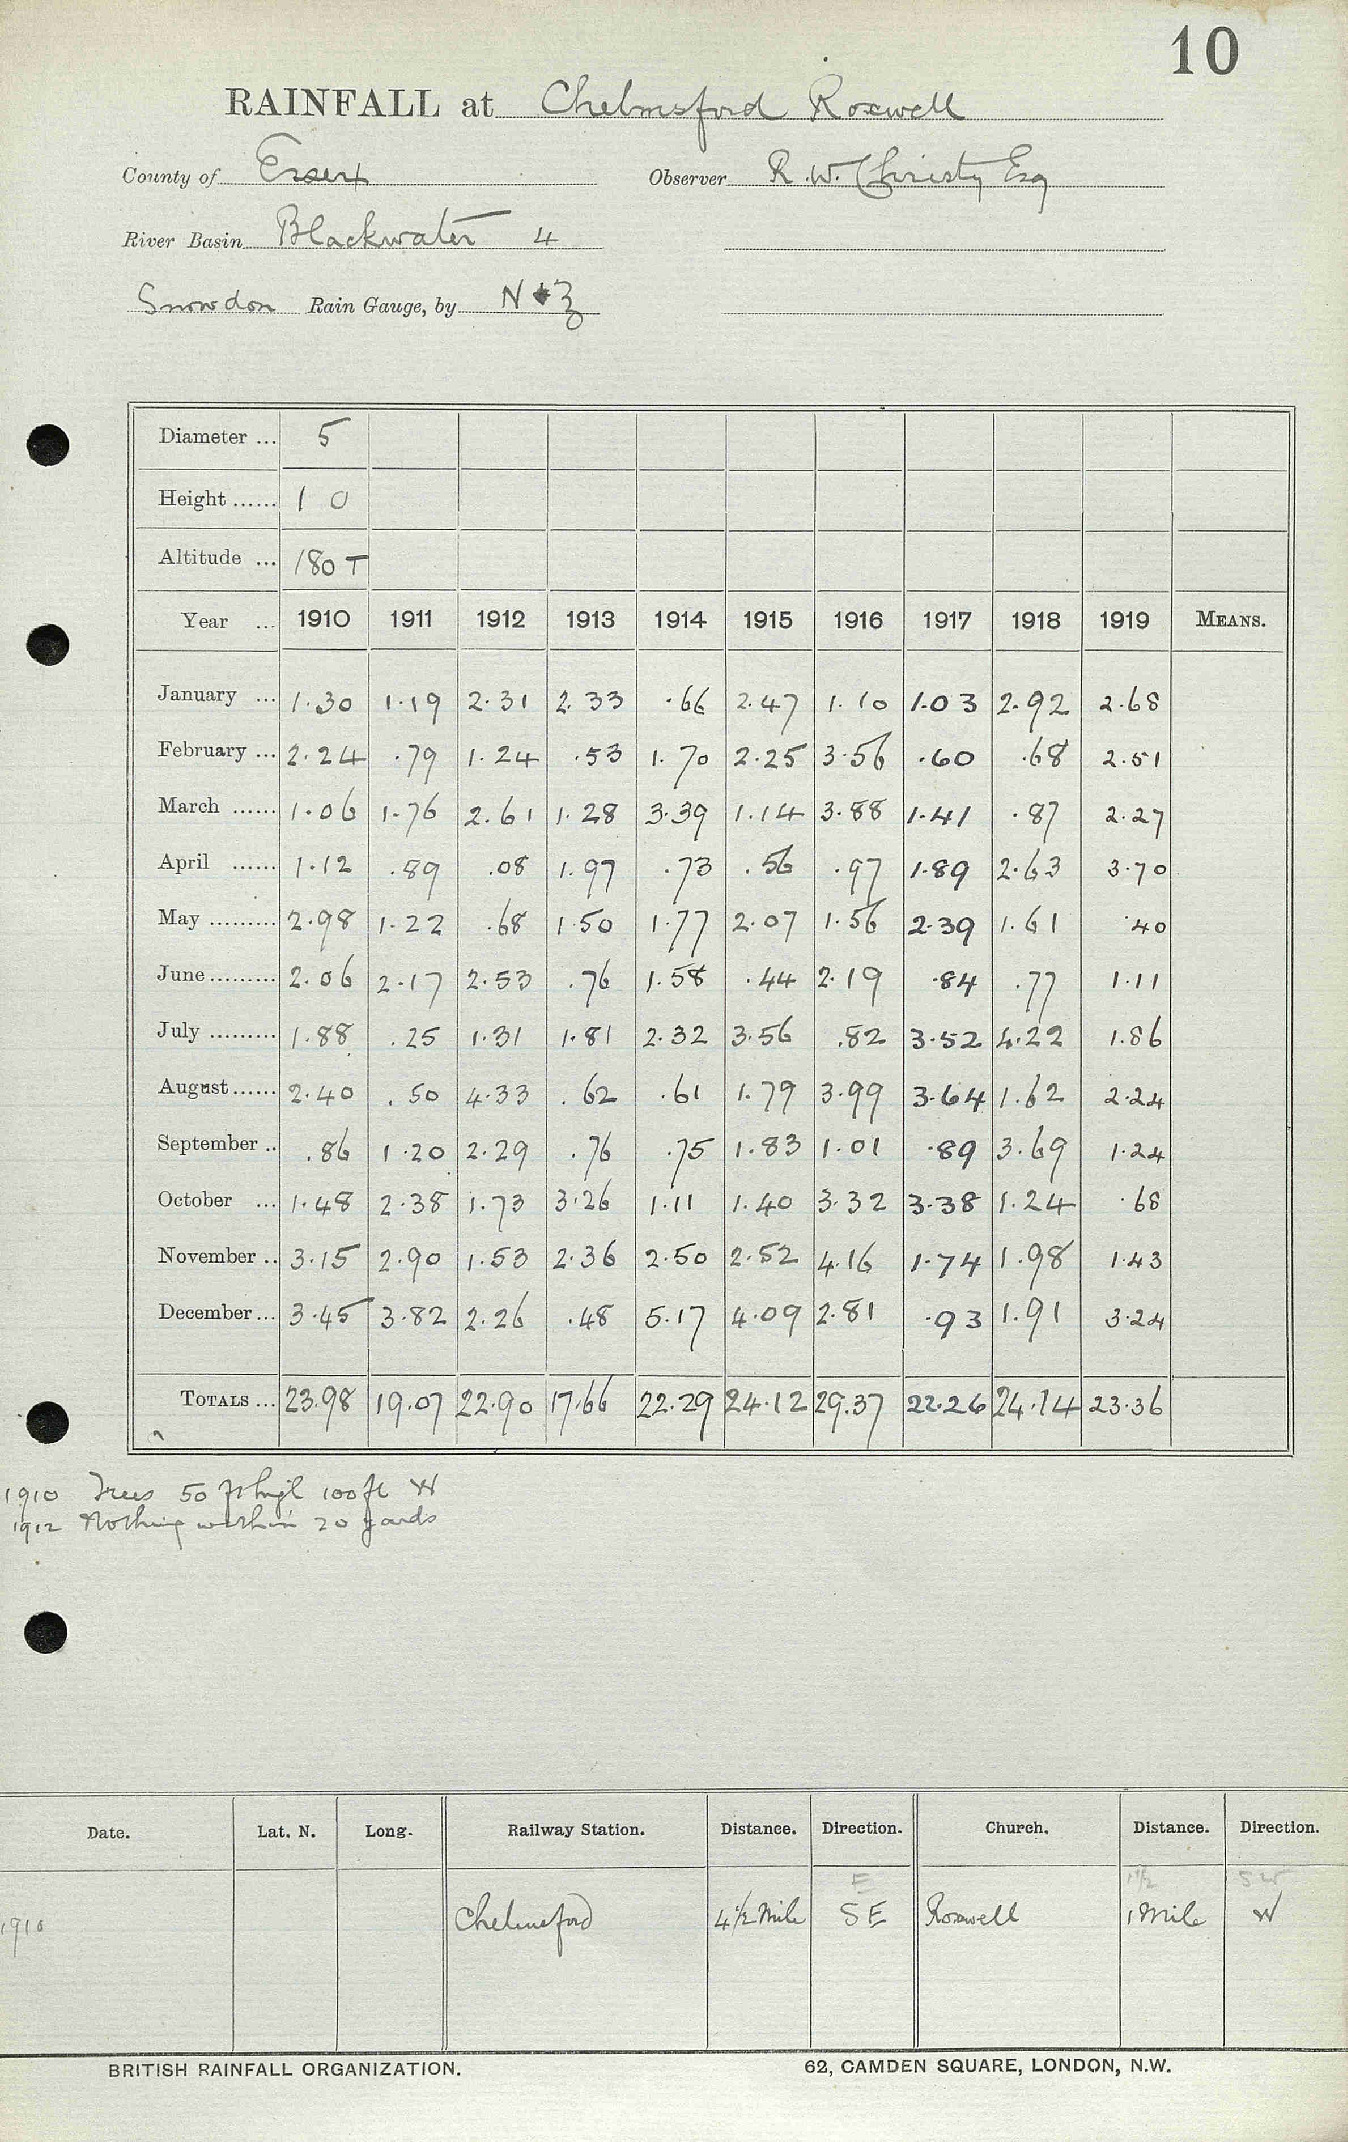 10
RAINFALL at Chelmsford Roxwell
County of Essex Observer R. W. Christy Esq
River Basin Blackwater 4
Snowdon Rain Gauge, by N & Z
Diameter ... 5
Height ...... 1 0
Altitude ... 180 T
Year ... 1910 1911 1912 1913 1914 1915 1916 1917 1918 1919 MEANS.
January ... 1.30 1.19 2.31 2.33 .66 2.47 1.10 1.03 2.92 2.68
February ... 2.24 .79 1.24 .53 1.70 2.25 3.56 .60 .68 2.51
March ...... 1.06 1.76 2.61 1.28 3.39 1.14 3.88 1.41 .87 2.27
April ...... 1.12 .89 .08 1.97 .73 .56 .97 1.89 2.63 3.70
May ......... 2.98 1.22 .68 1.50 1.77 2.07 1.56 2.39 1.61 .40
June ......... 2.06 2.17 2.53 .76 1.58 .44 2.19 .84 .77 1.11
July ......... 1.88 .25 1.31 1.81 2.32 3.56 .82 3.52 4.22 1.86
August ...... 2.40 .50 4.33 .62 .61 1.79 3.99 3.64 1.62 2.24
September .. .86 1.20 2.29 .76 .75 1.83 1.01 .89 3.69 1.24
October ... 1.48 2.38 1.73 3.26 1.11 1.40 3.32 3.38 1.24 .68
November .. 3.15 2.90 1.53 2.36 2.50 2.52 4.16 1.74 1.98 1.43
December ... 3.45 3.82 2.26 .48 5.17 4.09 2.81 .93 1.91 3.24
TOTALS ... 23.98 19.07 22.90 17.66 22.29 24.12 29.37 22.26 24.14 23.36
1910 Trees 50 ft high 100 ft W
1912 Nothing within 20 yards
Date. Lat. N. Long. Railway Station. Distance. Direction. Church. Distance. Direction.
E 1 1/2 SW
1910 Chelmsford 4 1/2 Mile SE Roxwell 1 Mile W
BRITISH RAINFALL ORGANIZATION. 62, CAMDEN SQUARE, LONDON, N.W.